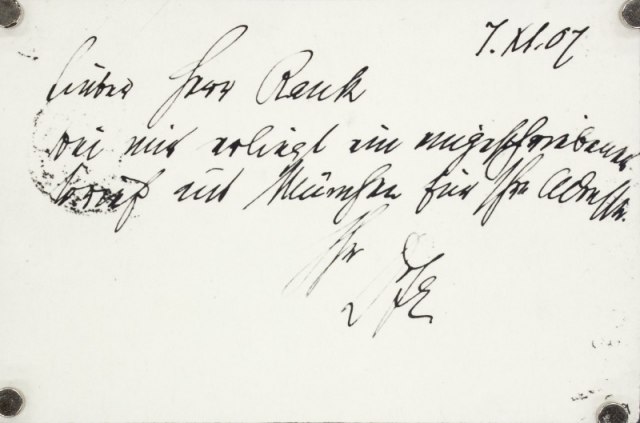 7.XI.07
Lieber Herr Rank
Bei mir erliegt ein eingeschriebener
Brief aus München für Ihre Adresse.
Ihr